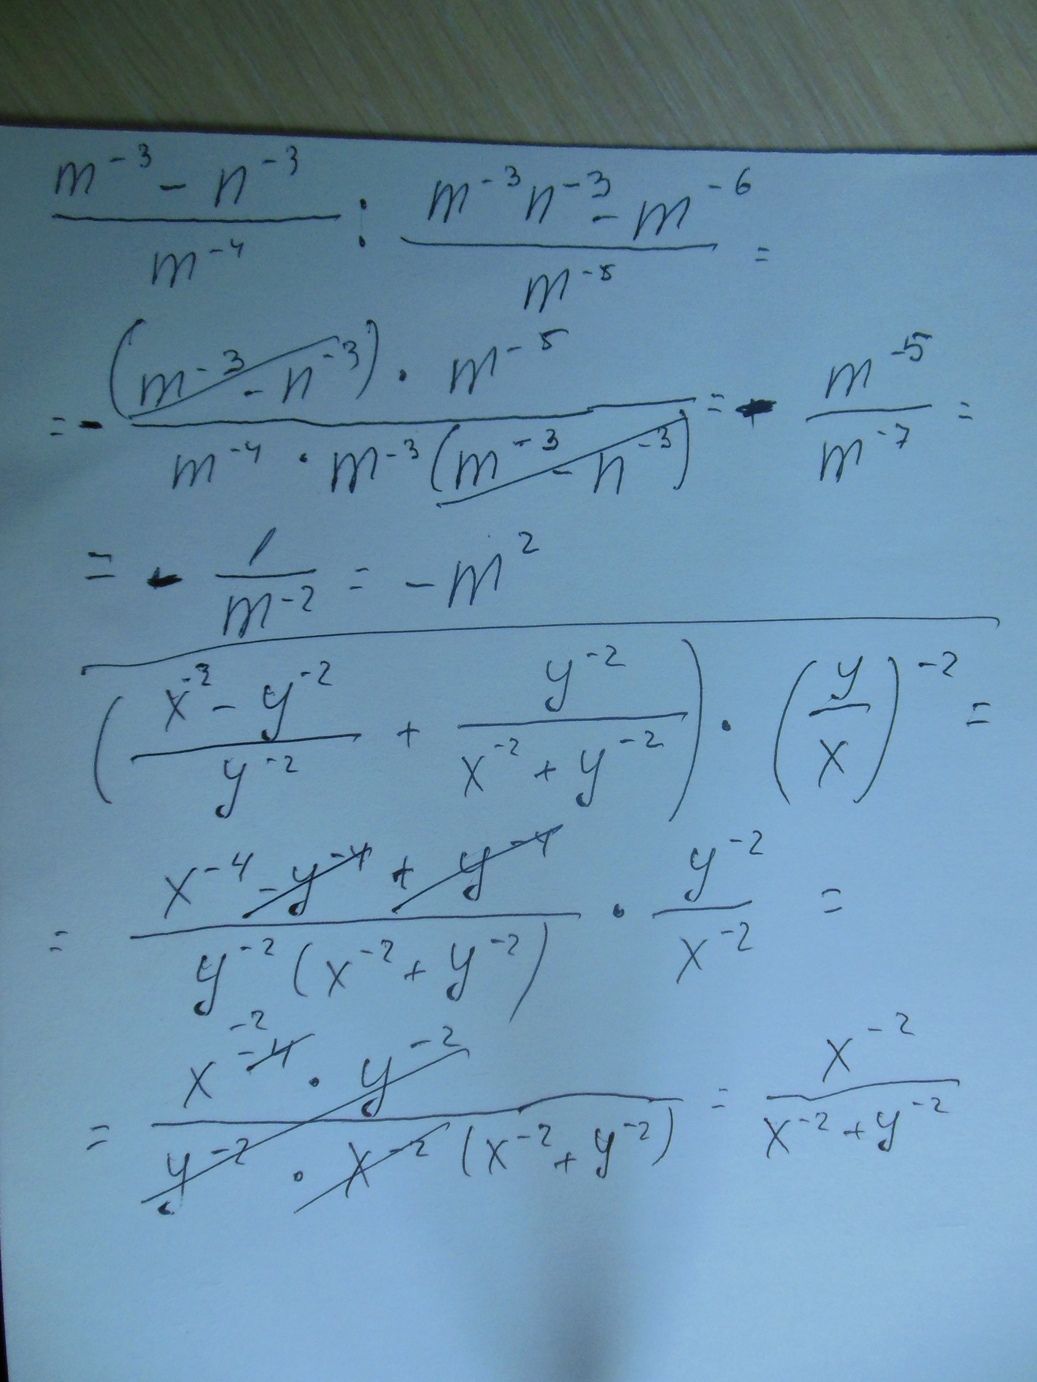 (m⁻³ - n⁻³)/m⁻⁴ : (m⁻³n⁻³ - m⁻⁶)/m⁻⁵ =
= - ((m⁻³ - n⁻³) · m⁻⁵)/(m⁻⁴ · m⁻³(m⁻³ - n⁻³)) = - m⁻⁵/m⁻⁷ =
= - 1/m⁻² = -m²
((x⁻² - y⁻²)/y⁻² + y⁻²/(x⁻² + y⁻²)) · (y/x)⁻² =
= (x⁻⁴ - y⁻⁴ + y⁻⁴)/(y⁻²(x⁻² + y⁻²)) · y⁻²/x⁻² =
-2
= (x⁻⁴ · y⁻²)/(y⁻² · x⁻²(x⁻² + y⁻²)) = x⁻²/(x⁻² + y⁻²)